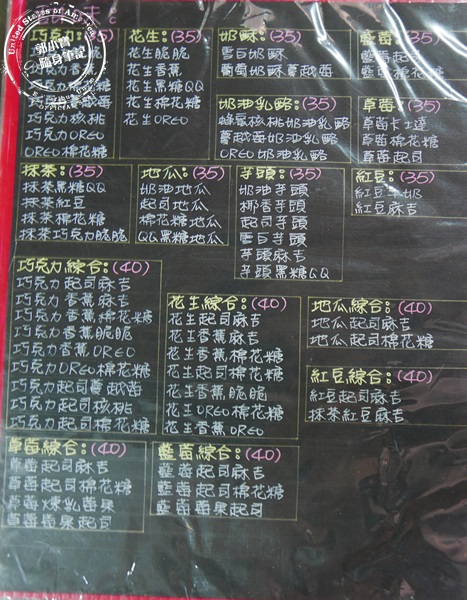 United States of
郭小寶
隨身筆記
巧克力:(35)
巧克力香蕉
巧克力核桃
巧克力OREO
OREO棉花糖
花生:(35)
花生脆脆
花生香蕉
花生黑糖QQ
花生棉花糖
花生OREO
奶酥:(35)
雪白奶酥
葡萄奶酥蔓越莓
藍莓:(35)
藍莓起司
藍莓棉花糖
奶油乳酪:(35)
蜂蜜核桃奶油乳酪
蔓越莓奶油乳酪
OREO奶油乳酪
草莓:(35)
草莓卡士達
草莓棉花糖
草莓起司
抹茶:(35)
抹茶黑糖QQ
抹茶紅豆
抹茶棉花糖
抹茶巧克力脆脆
地瓜:(35)
奶油地瓜
起司地瓜
棉花糖地瓜
QQ黑糖地瓜
芋頭:(35)
奶油芋頭
椰香芋頭
起司芋頭
雪白芋頭
芋頭麻吉
芋頭黑糖QQ
紅豆:(35)
紅豆牛奶
紅豆麻吉
巧克力綜合:(40)
巧克力起司麻吉
巧克力香蕉麻吉
巧克力香蕉棉花糖
巧克力香蕉脆脆
巧克力香蕉OREO
巧克力OREO棉花糖
巧克力起司蔓越莓
巧克力起司核桃
巧克力起司棉花糖
花生綜合:(40)
花生起司麻吉
花生香蕉麻吉
花生香蕉棉花糖
花生起司棉花糖
花生香蕉脆脆
花生OREO棉花糖
花生香蕉OREO
地瓜綜合:(40)
地瓜起司麻吉
地瓜起司棉花糖
紅豆綜合:(40)
紅豆起司麻吉
抹茶紅豆麻吉
草莓綜合:(40)
草莓起司麻吉
草莓起司棉花糖
草莓煉乳莓果
草莓莓果起司
藍莓綜合:(40)
藍莓起司麻吉
藍莓起司棉花糖
藍莓莓果起司